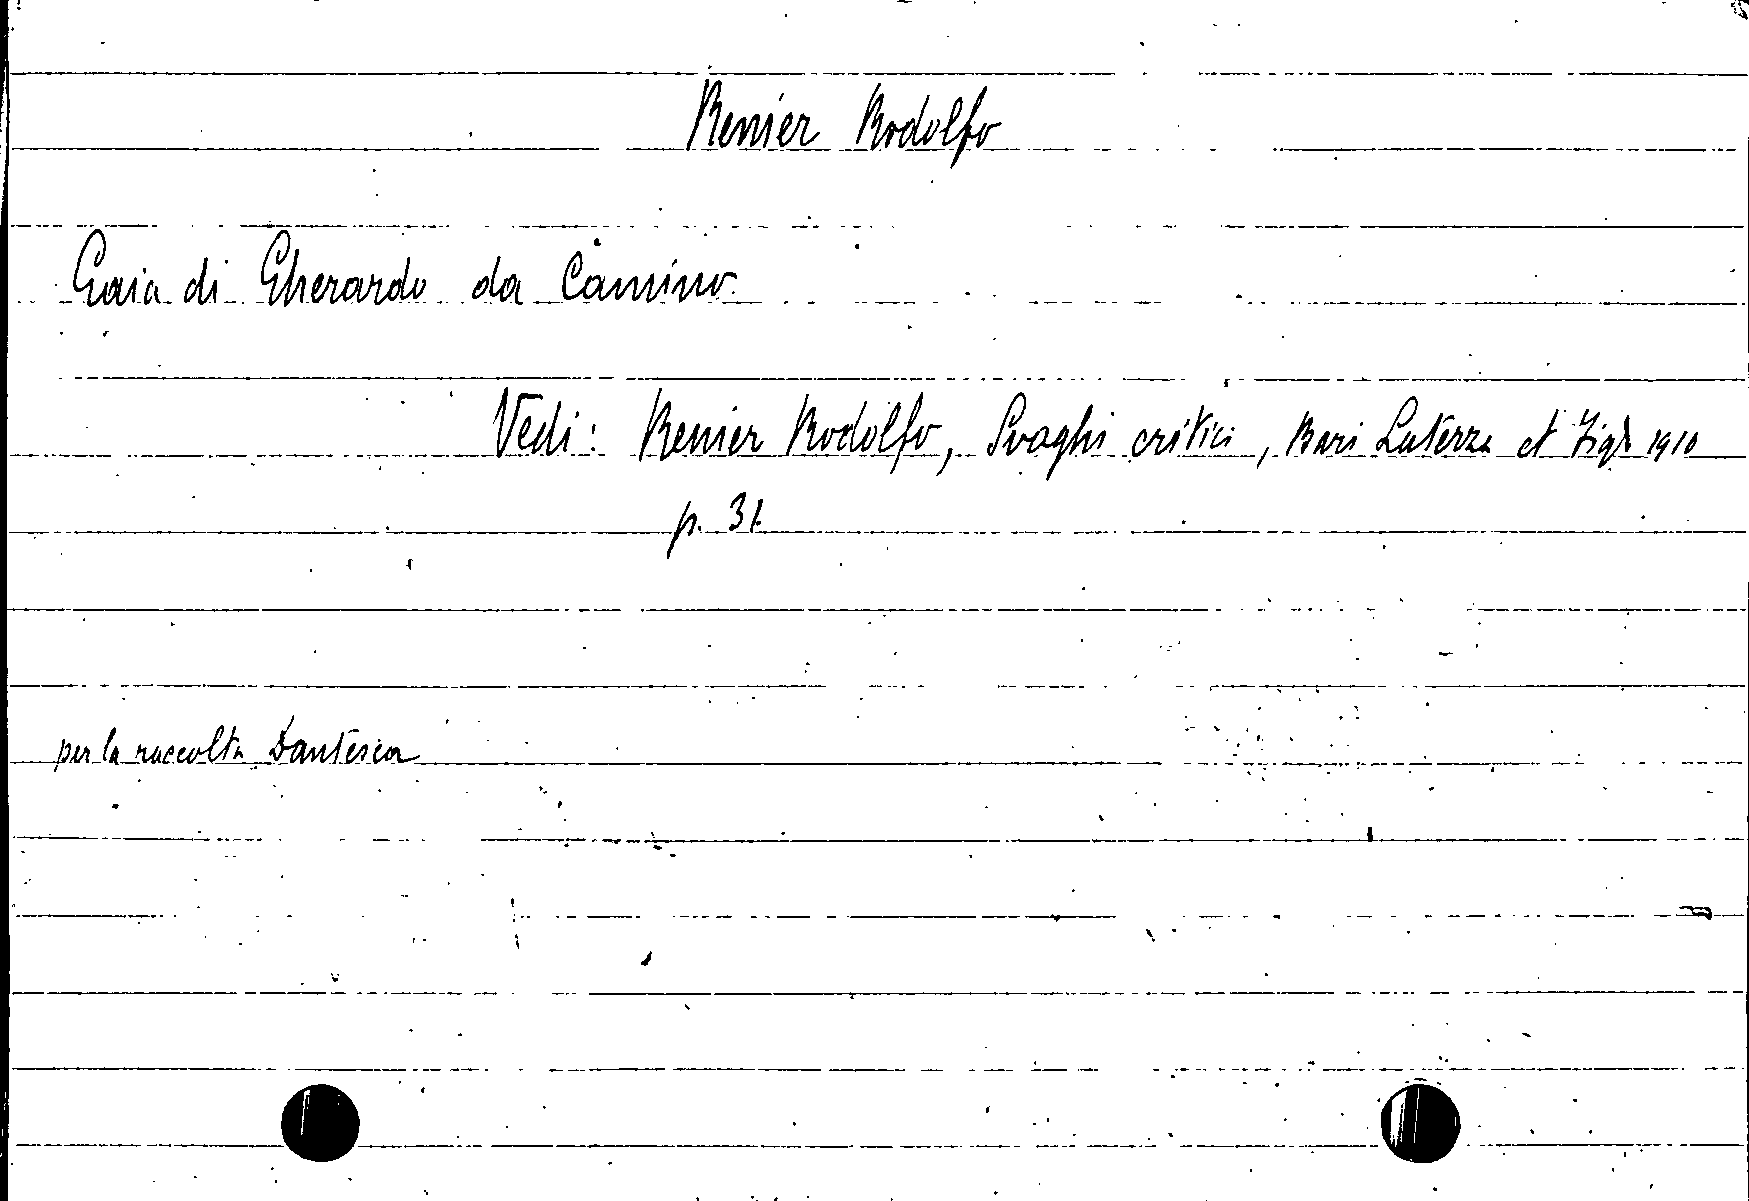 Renier Rodolfo
Gaia di Gherardo da Camino.
Vedi: Renier Rodolfo, Svaghi critici, Bari Laterza et Figli 1910
p. 31.
per la raccolta Dantesca